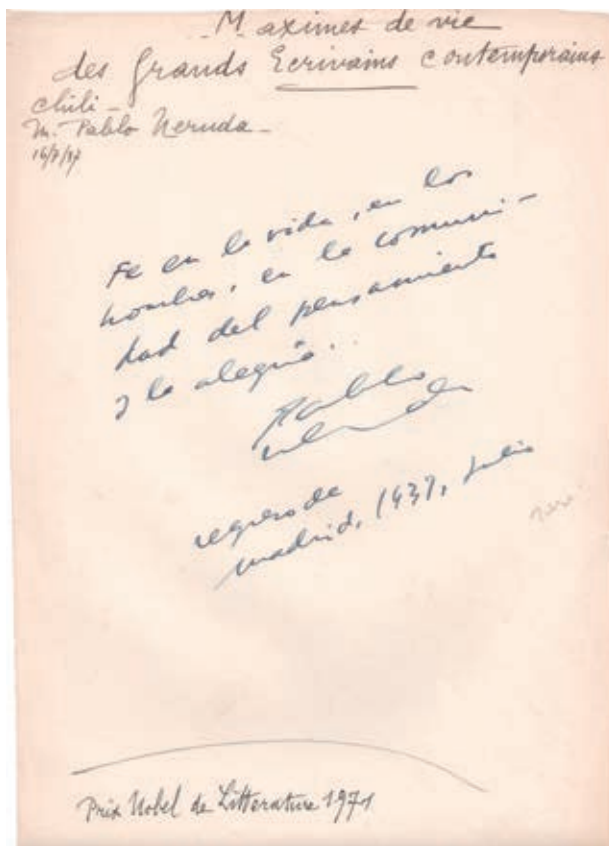 Maximes de vie
des Grands Ecrivains contemporains
chili -
M. Pablo Neruda -
16/7/37
Fe en la vida, en los
hombres, en la comuni-
dad del pensamiento
y la alegría..
Pablo
Neruda
regreso de
madrid, 1937, Julio
Prix Nobel de Litterature 1971